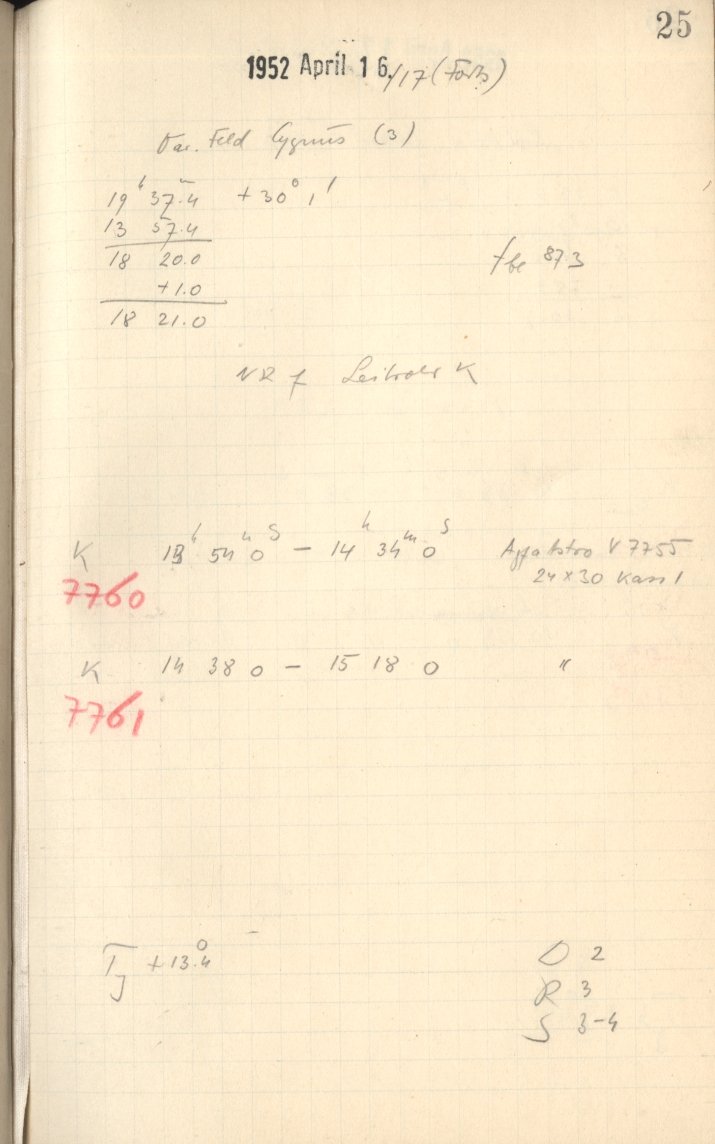 25
1952 April 16./17 (Forts)
Var. Feld Cygnus (3)
19h 37m.4 +30° 1'
13 57.4
18 20.0
+1.0
18 21.0
fbe 87.3
f Leitrohr K
K 13h 54m 0s - 14h 34m 0s Agfa Astro V 7755
24x30 Kass 1
7760
K 14 38 0 - 15 18 0 "
7761
TJ +13°.4
D 2
R 3
S 3-4